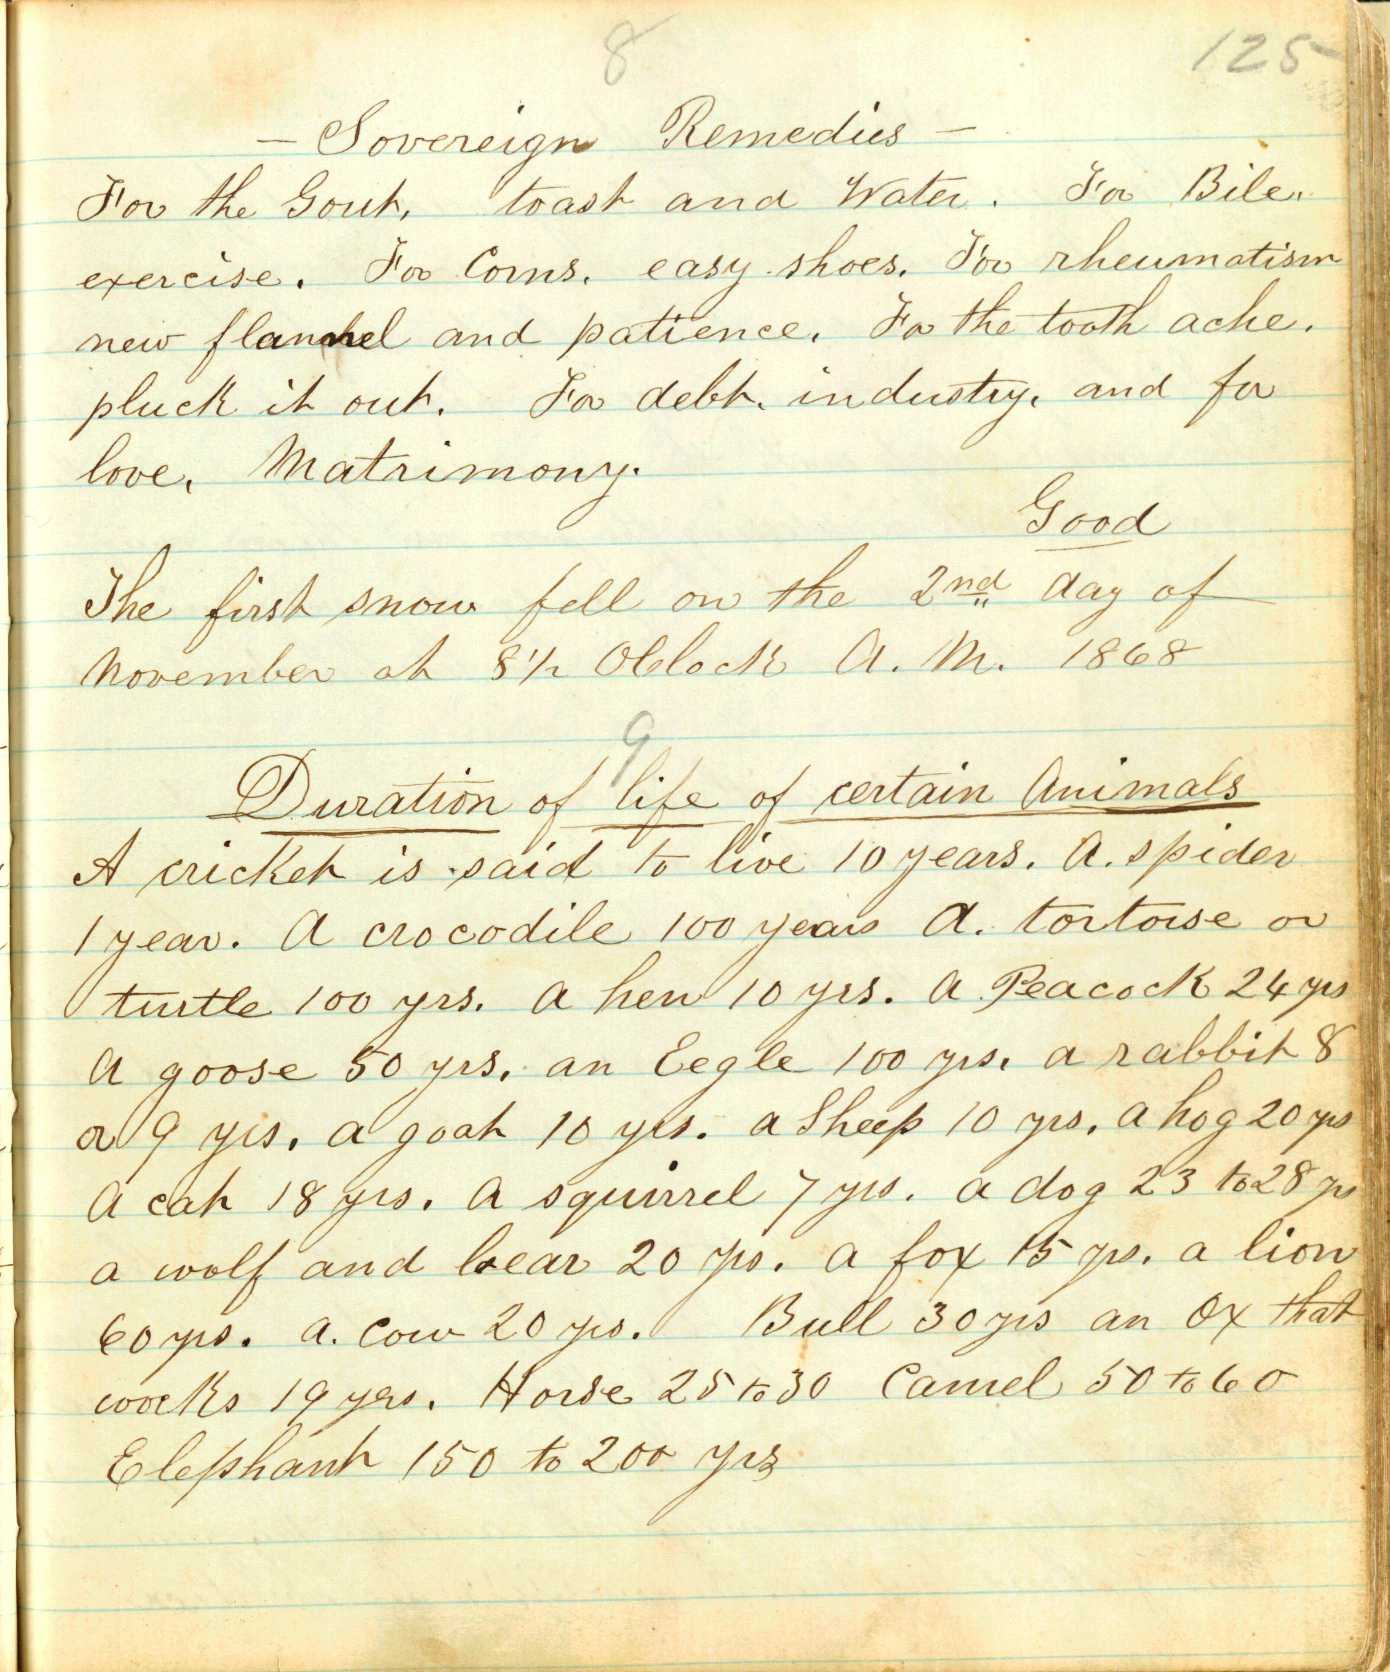 8
125
— Sovereign Remedies —
For the Gout, toast and Water. For Bile,
exercise. For Corns, easy shoes. For rheumatism
new flannel and patience. For the tooth ache,
pluck it out. For debt, industry, and for
love, Matrimony.
Good
The first snow fell on the 2nd day of
November at 8 1/2 OClock A. M. 1868
9
Duration of life of certain Animals
A cricket is said to live 10 years. A. spider
1 year. A crocodile 100 years A. tortoise or
turtle 100 yrs. A hen 10 yrs. A Peacock 24 yrs
A goose 50 yrs. an Eegle 100 yrs. a rabbit 8
or 9 yrs. a goat 10 yrs. a Sheep 10 yrs. a hog 20 yrs
A cat 18 yrs. A squirrel 7 yrs. a dog 23 to 28 yrs
a wolf and bear 20 yrs. a fox 15 yrs. a lion
60 yrs. a. cow 20 yrs. Bull 30 yrs an Ox that
works 19 yrs. Horse 25 to 30 Camel 50 to 60
Elephant 150 to 200 yrs